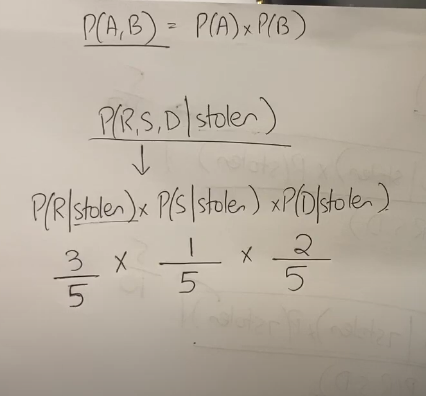 P(A,B) = P(A) x P(B)
P(R,S,D|stolen)
↓
P(R|stolen) x P(S|stolen) x P(D|stolen)
3/5 x 1/5 x 2/5